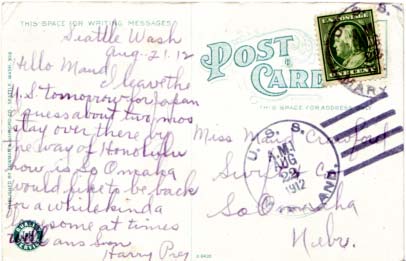 THIS SPACE FOR WRITING MESSAGES
Seattle Wash
Aug. 21. 12
Hello Maud
I leave the
U.S. tomorrow for Japan
I guess about two mos
stay over there by
the way of Honolulu
how is So Omaha
would like to be back
for a while kinda
lonesome at times
ans soon
Harry
POST
CARD
THIS SPACE FOR ADDRESS ONLY
U.S. POSTAGE
1 CENT 1
Miss Maud Crawford
Swift Co
So Omaha
Nebr.
U. S. S.
A.M
AUG
22
1912
LAND.